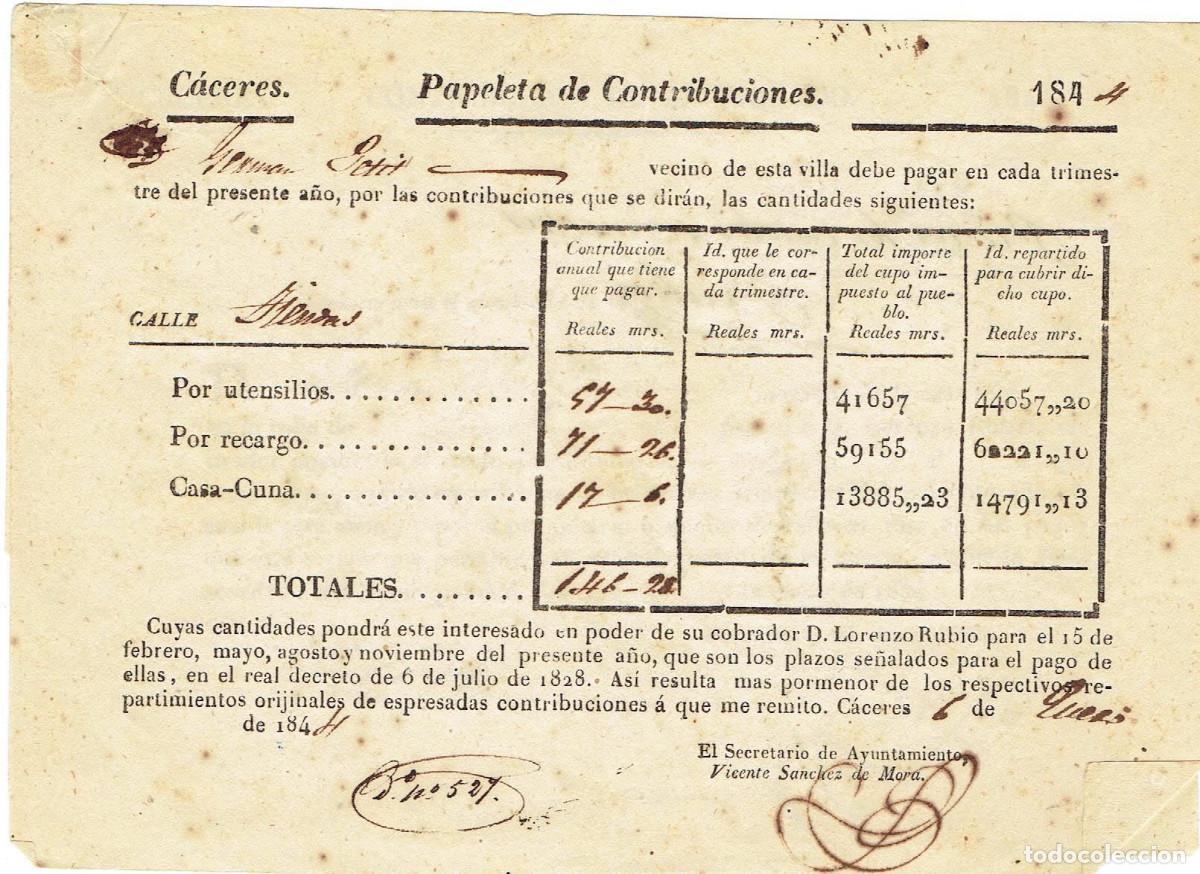 Cáceres. Papeleta de Contribuciones. 1844
German Petit vecino de esta villa debe pagar en cada trimes-
tre del presente año, por las contribuciones que se dirán, las cantidades siguientes:
Contribucion anual que tiene que pagar. Id. que le cor-responde en ca-da trimestre. Total importe del cupo im-puesto al pue-blo. Id. repartido para cubrir di-cho cupo.
CALLE Tiendas
Reales mrs. Reales mrs. Reales mrs. Reales mrs.
Por utensilios. 57-30. 41657 44057,,20
Por recargo. 71-26. 59155 62221,,10
Casa-Cuna. 17-6. 13885,,23 14791,,13
TOTALES. 146-28.
Cuyas cantidades pondrá este interesado en poder de su cobrador D. Lorenzo Rubio para el 15 de
febrero, mayo, agosto y noviembre del presente año, que son los plazos señalados para el pago de
ellas, en el real decreto de 6 de julio de 1828. Así resulta mas pormenor de los respectivos re-
partimientos orijinales de espresadas contribuciones á que me remito. Cáceres 6 de Enero
de 1844
El Secretario de Ayuntamiento,
Vicente Sanchez de Mora.
nº 527.
todocoleccion